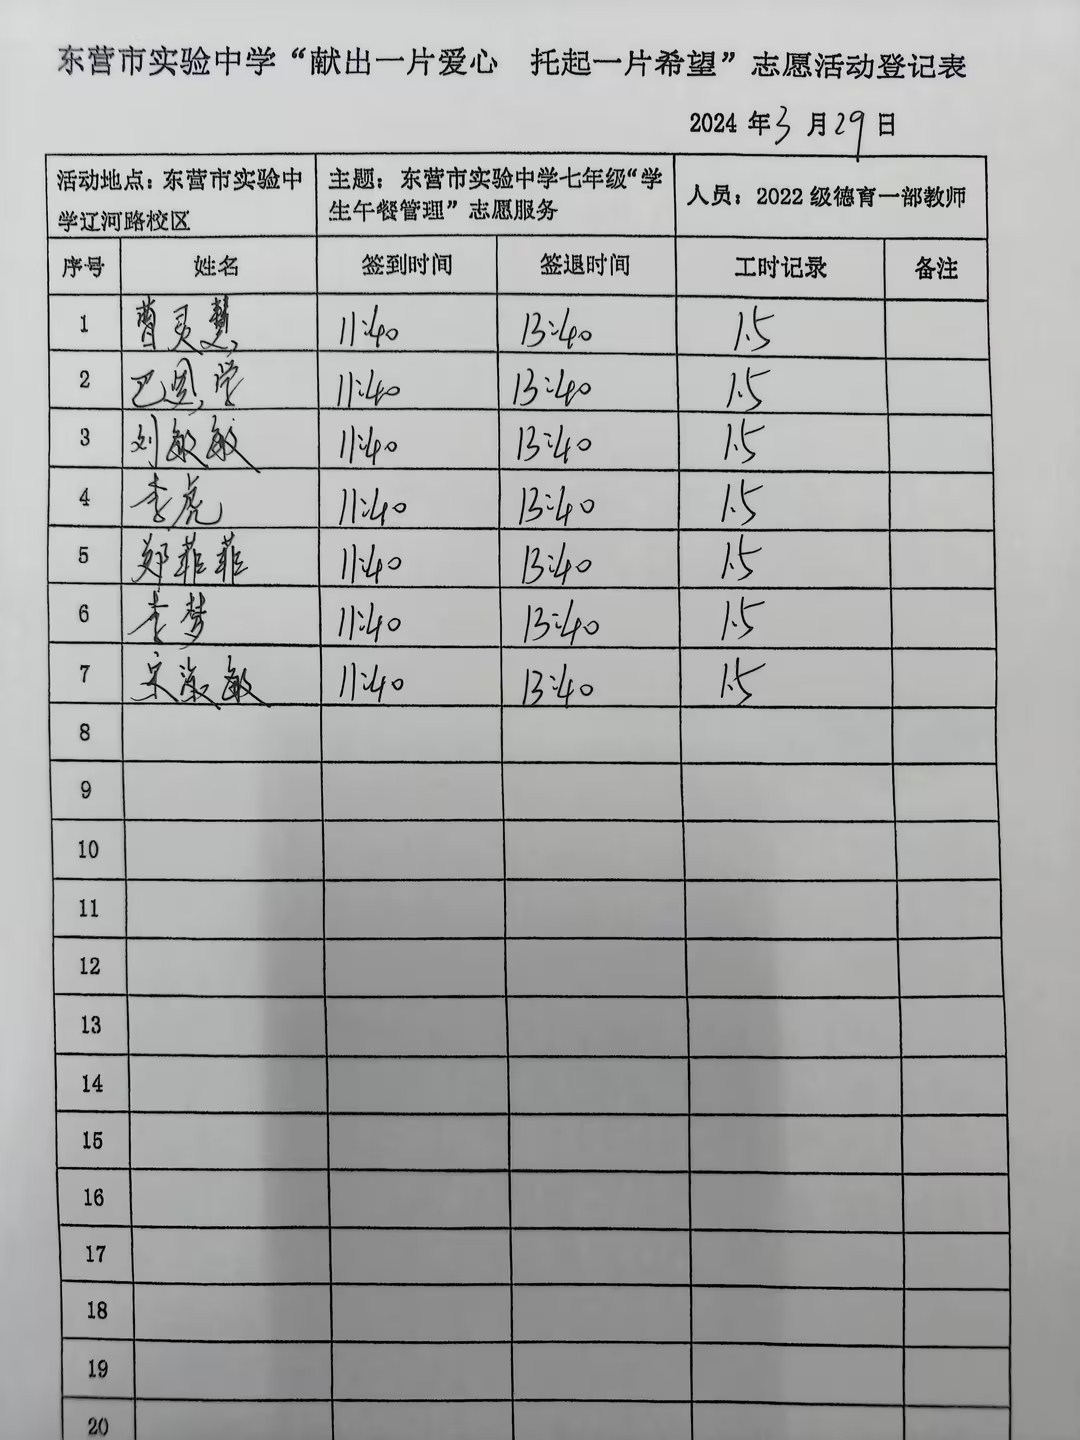 东营市实验中学“献出一片爱心 托起一片希望”志愿活动登记表
2024 年 3 月 29 日
活动地点：东营市实验中
学辽河路校区
主题：东营市实验中学七年级“学
生午餐管理”志愿服务
人员：2022 级德育一部教师
序号 姓名 签到时间 签退时间 工时记录 备注
1 曹灵慧 11:40 13:40 1.5
2 巴恩学 11:40 13:40 1.5
3 刘敏敏 11:40 13:40 1.5
4 李虎 11:40 13:40 1.5
5 郑菲菲 11:40 13:40 1.5
6 李梦 11:40 13:40 1.5
7 宋淑敏 11:40 13:40 1.5
8
9
10
11
12
13
14
15
16
17
18
19
20